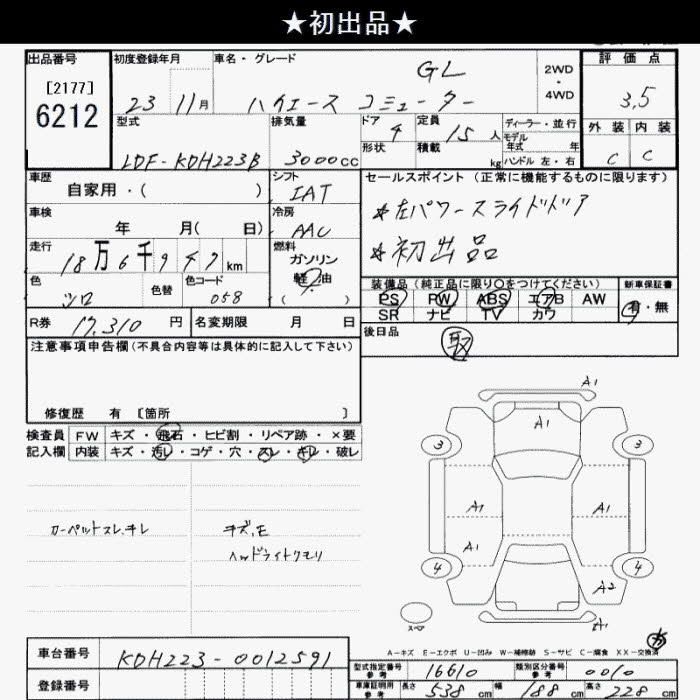 ★初出品★
出品番号 初度登録年月 車名・グレード 評価点
[2177] GL 2WD・4WD
6212 23 11月 ハイエース コミューター 3.5
型式 排気量 ドア 4 定員 15人 ディーラー・並行 外装 内装
形状 積載 kg モデル年式 年 C C
LDF-KDH223B 3000cc ハンドル 左・右
車歴 シフト セールスポイント (正常に機能するものに限ります)
自家用・( ) IAT
車検 冷房 ★左パワースライドドア
年 月( 日) AAC
走行 燃料 ★初出品
18万6千947km ガソリン
色 色替 色コード 軽油 装備品(純正品に限り○をつけてください) 新車保証書
シロ 058 ( ) PS PW ABS エアB AW 有・無
R券 17,310円 名変期限 月 日 SR ナビ TV カワ
注意事項申告欄(不具合内容等は具体的に記入して下さい) 後日品
取
修復歴 有 [箇所 ]
検査員 FW キズ・飛石・ヒビ割・リペア跡・×要
記入欄 内装 キズ・汚レ・コゲ・穴・スレ・キレ・破レ
A1
A1
3 3
カーペットスレ、キレ キズ,E A1 A1
ヘッドライトクモリ A1
4 4
A2
スペア A1
A-キズ E-エクボ U-凹み W-補修跡 S-サビ C-腐食 XX-交換済
車台番号 KDH223-0012591
型式指定番号 参考 16610 類別区分番号 参考 0010
登録番号 車庫証明用 参考 長さ 538cm 幅 188cm 高さ 228cm